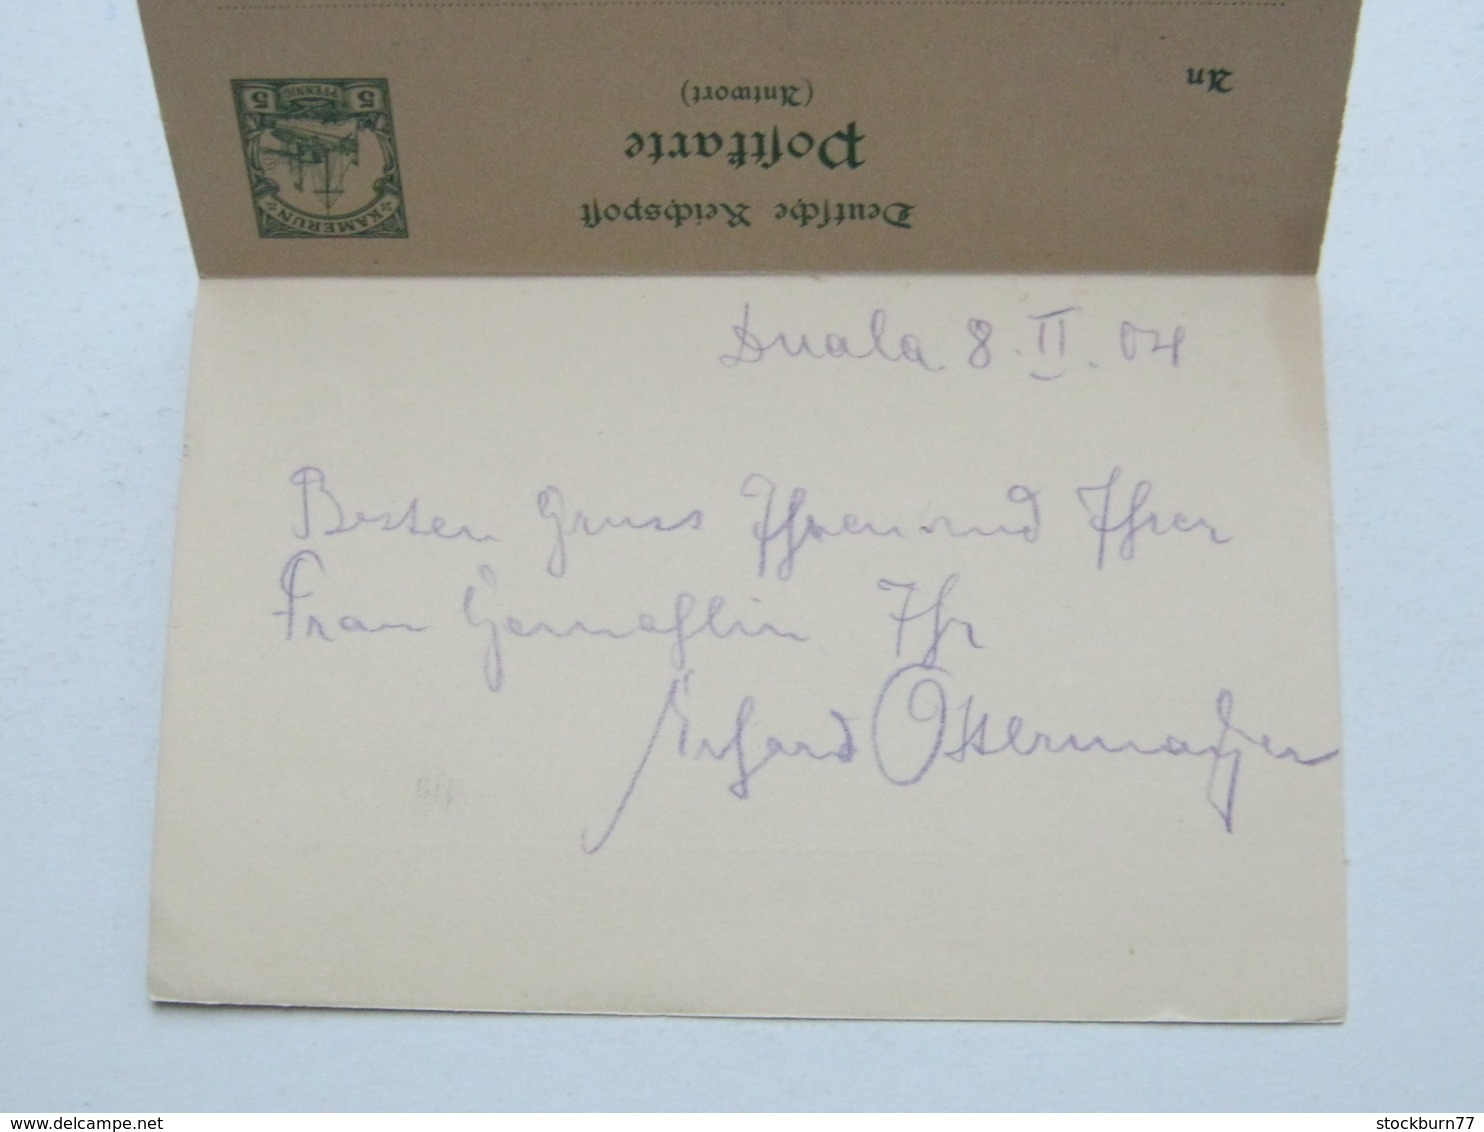 An
(Antwort)
Postkarte
Deutsche Reichspost
5 PFENNIG 5
KAMERUN
Duala 8. II. 04
Besten Gruss Ihnen und Ihrer
Frau Gemahlin Ihr
Erhard Ostermayer
delcampe.net
stockburn77